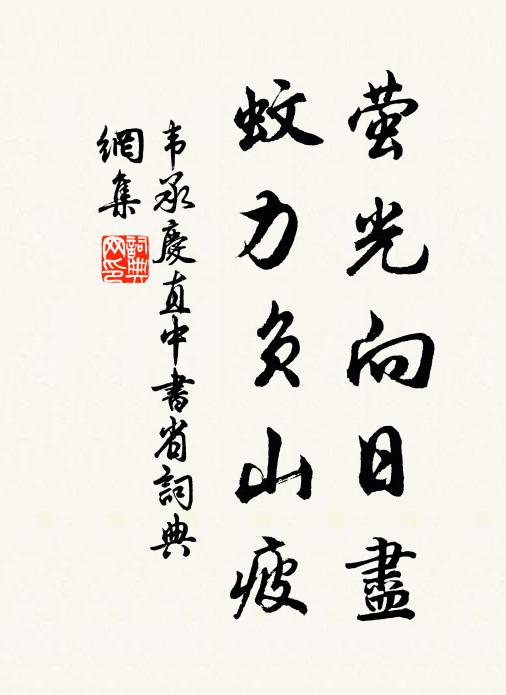 萤光向日盡
蚊力负山疲
韦承慶直中書省詞典
網集
詞典網印